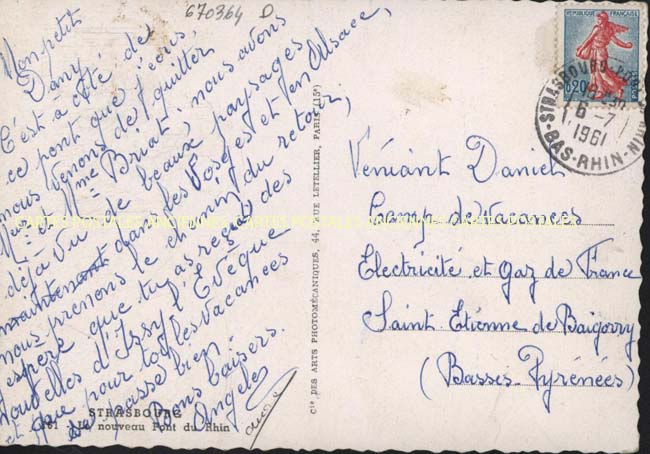 670364 D
Mon petit
Dany,
C'est à côté de
ce pont que j'écris,
nous venons de quitter
Mme Briat, nous avons
déjà vu de beaux paysages
dans les Vosges et en Alsace,
maintenant
nous prenons le chemin du retour,
j'espère que tu as reçu des
nouvelles d'Issy l'Evêque
et que pour toi les vacances
se passe bien.
Bons baisers.
Angèle
STRASBOURG
Le nouveau Pont du Rhin
Cie DES ARTS PHOTOMÉCANIQUES, 44, RUE LETELLIER, PARIS (15e)
REPUBLIQUE FRANÇAISE
0,20
POSTES
STRASBOURG
6-7
1961
BAS-RHIN
Veniant Daniel
Camp de Vacances
Electricité et Gaz de France
Saint Etienne de Baigorry
(Basses-Pyrénées)